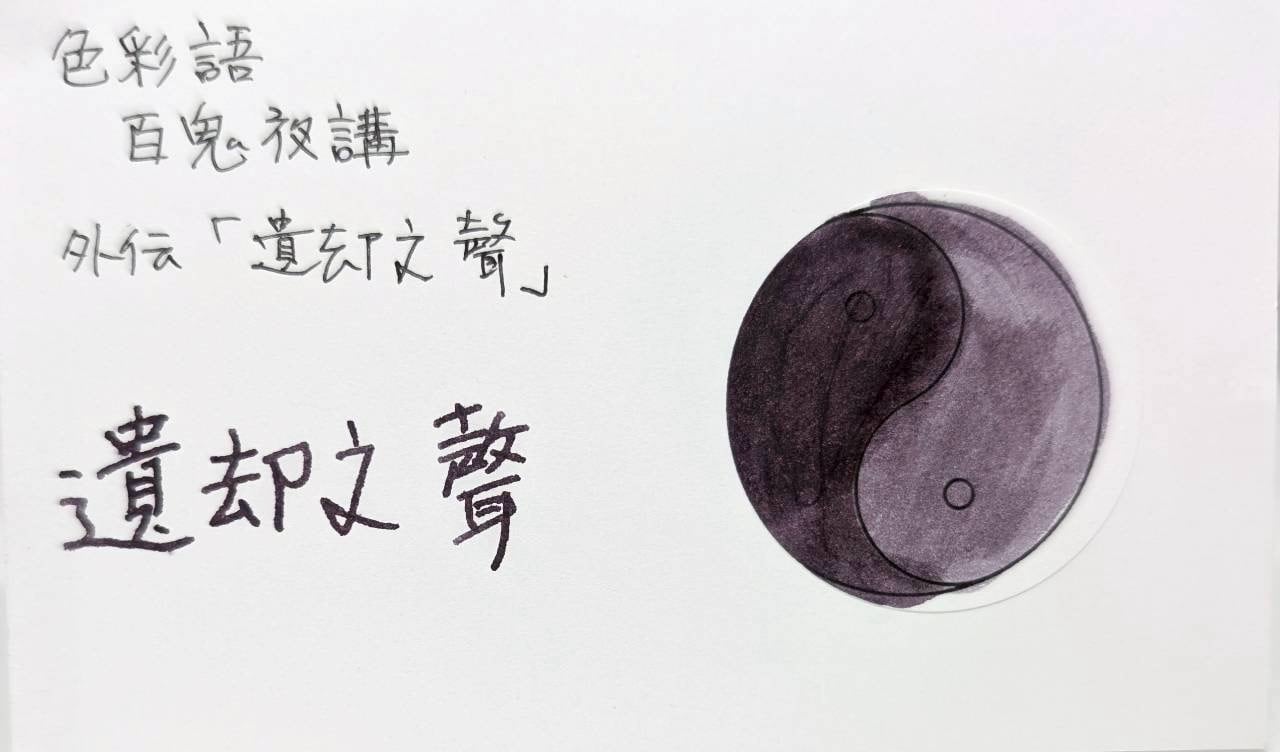 色彩語
百鬼夜講
外伝「遺却文聲」
遺却文聲